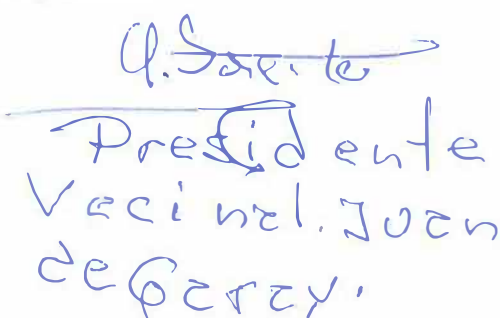 Presidente
Vecinal. Juan
de Garay.